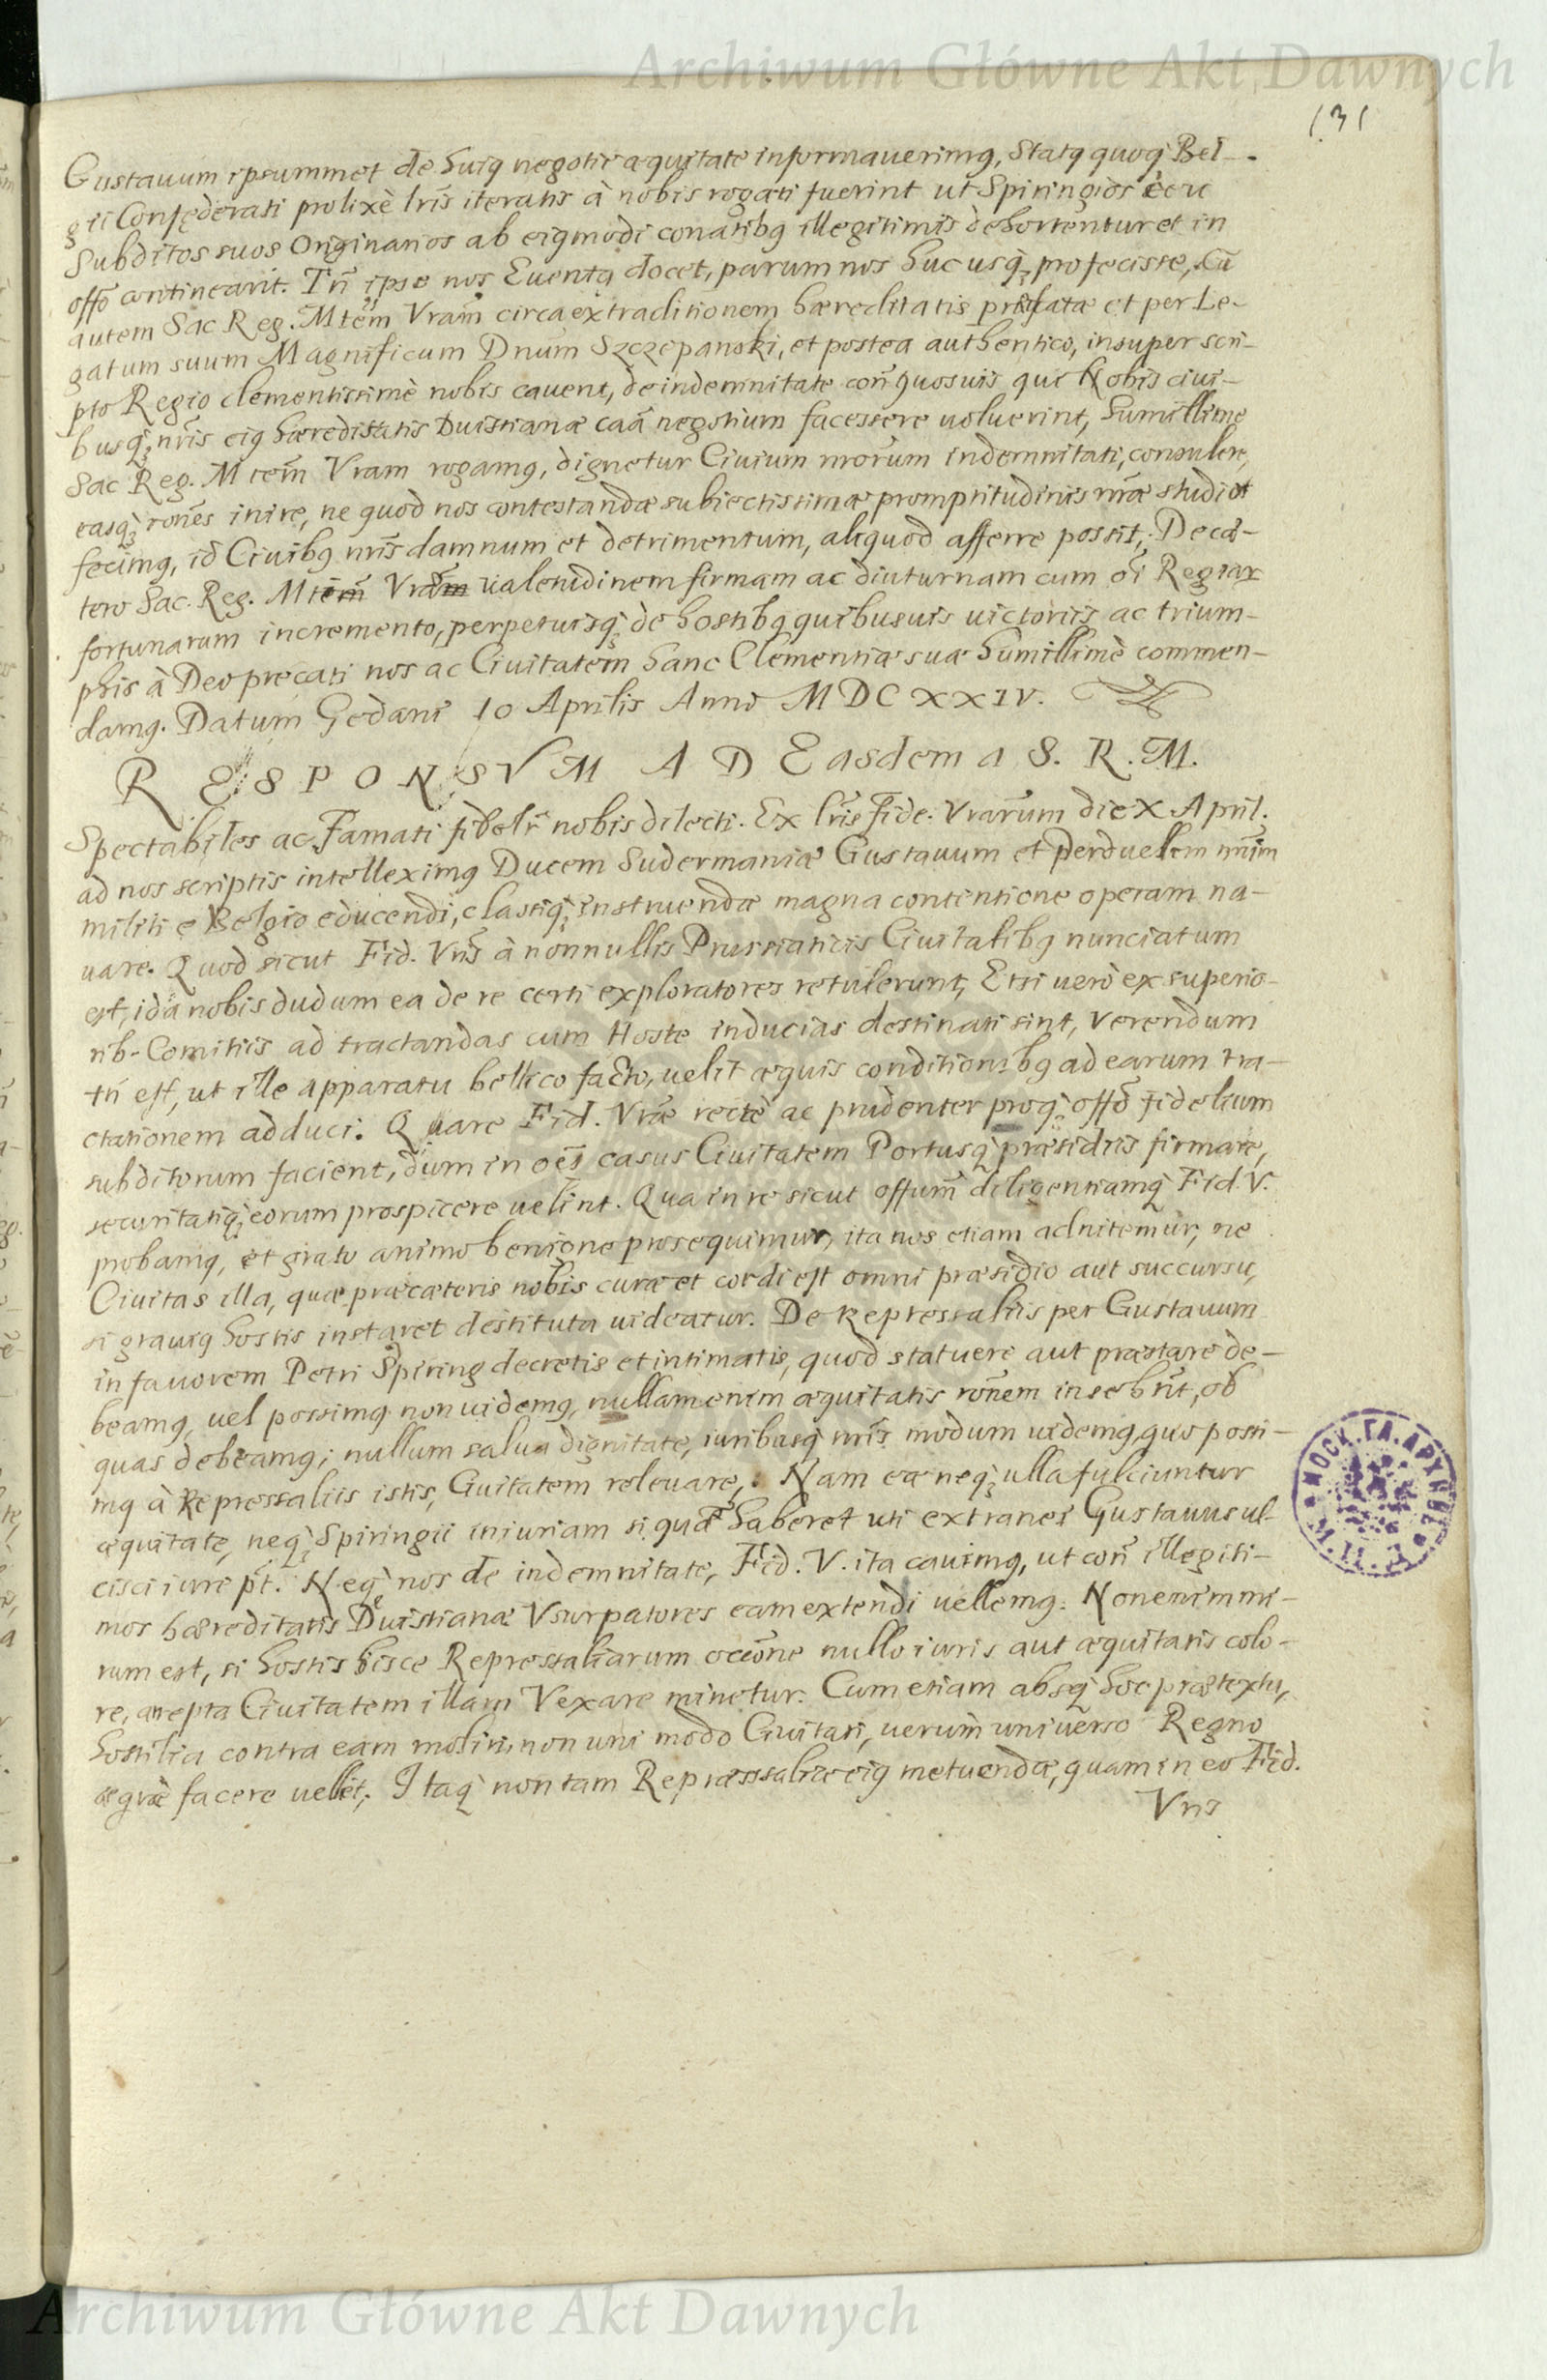 Archiwum Główne Akt Dawnych
131
Gustauum ipsummet de huiq negotii æquitate informauerimq, Statq quoq Bel-
gii Confęderati prolixè lris iteratis à nobis rogati fuerint ut Spiringios ceu
Subditos suos Originarios ab eiqmodi conatibq illegitimis dehortentur et in
offo contineant. Tñ ipse nos Euentq docet, parum nos huc usq profecisse, Cũ
autem Sac Reg. Mtem Vram circa extraditionem hæreditatis præfatæ et per Le-
gatum suum Magnificum Dnum Szczepanski, et postea authentico, insuper scri-
pto Regio clementissimè nobis cauent, de indemnitate coñ quosuis qui Nobis ciui-
busq nris eiq hæreditatis Duistianæ caã negotium facessere uoluerint, humillime
Sac Reg. Mtem Vram rogamq, dignetur Ciuium nrorum indemnitati, consulere,
easq rones inire, ne quod nos contestandæ subiectissimæ promptitudinis nræ studio
fecimq, id Ciuibq nris damnum et detrimentum, aliquod afferre possit, De cæ-
tero Sac. Reg. Mtem Vram ualetudinem firmam ac diuturnam cum oi Regiar
fortunarum incremento, perpetuisq de hostibq quibusuis uictoriis ac trium-
phis à Deo precati nos ac Ciuitatem hanc Clementiæ suæ humillimè commen-
damq. Datum Gedani 10 Aprilis Anno MDCXXIV.
RESPONSVM AD Easdem a S. R. M.
Spectabiles ac Famati fideli nobis dilecti. Ex lris Fide. Vrarum die X April.
ad nos scriptis intelleximq Ducem Sudermaniæ Gustauum et perduelem nrum
militi e Belgio educendi, classiq instruendæ magna contentione operam na-
uare. Quod sicut Fid. Vris à nonnullis Prussiaticis Ciuitatibq nunciatum
est, id à nobis dudum ea de re certi exploratores retulerunt, Etsi uerò ex superio-
rib. Comitiis ad tractandas cum Hoste inducias destinati sint, Verendum
tñ est, ut ille apparatu bellico facto, uelit æquis conditionibq ad earum tra-
ctationem adduci. Quare Fid. Vræ rectè ac prudenter proq offo fidelium
subditorum facient, dum in oes casus Ciuitatem Portusq præsidiis firmare,
securitatiq eorum prospicere uelint. Qua in re sicut offum diligentiamq Fid. V.
probamq, et grato animo benigne prosequimur, ita nos etiam adnitemur, ne
Ciuitas illa, quæ præ cæteris nobis curæ et cordi est omni præsidio aut succursu,
si grauiq hostis instaret destituta uideatur. De Repressaliis per Gustauum
in fauorem Petri Spiring decretis et intimatis, quod statuere aut præstare de-
beamq, uel possimq non uidemq, nullam enim æquitatis ronem in se hnt, ob
quas debeamq; nullum salua dignitate, iuribusq nris modum uidemq, quo possi-
mq à Repressaliis istis, Ciuitatem releuare, Nam eæ neq ulla fulciuntur
æquitate, neq Spiringii iniuriam si quã haberet uti extranei Gustauus ul-
cisci iure pt. Neq nos de indemnitate, Fid. V. ita cauimq, ut coñ illegiti-
mos hæreditatis Duistianæ Vsurpatores eam extendi uellemq. Non enim mi-
rum est, si hostis hisce Repressaliarum occone nullo iuris aut æquitatis colo-
re, arrepta Ciuitatem illam Vexare minetur. Cum etiam absq hoc prætextu,
hostilia contra eam moliri, non uni modo Ciuitati, uerum uniuerso Regno
ægrè facere uelit, Itaq non tam Repræssaliæ eiq metuendæ, quam in eo Fid.
Vris
Archiwum Główne Akt Dawnych